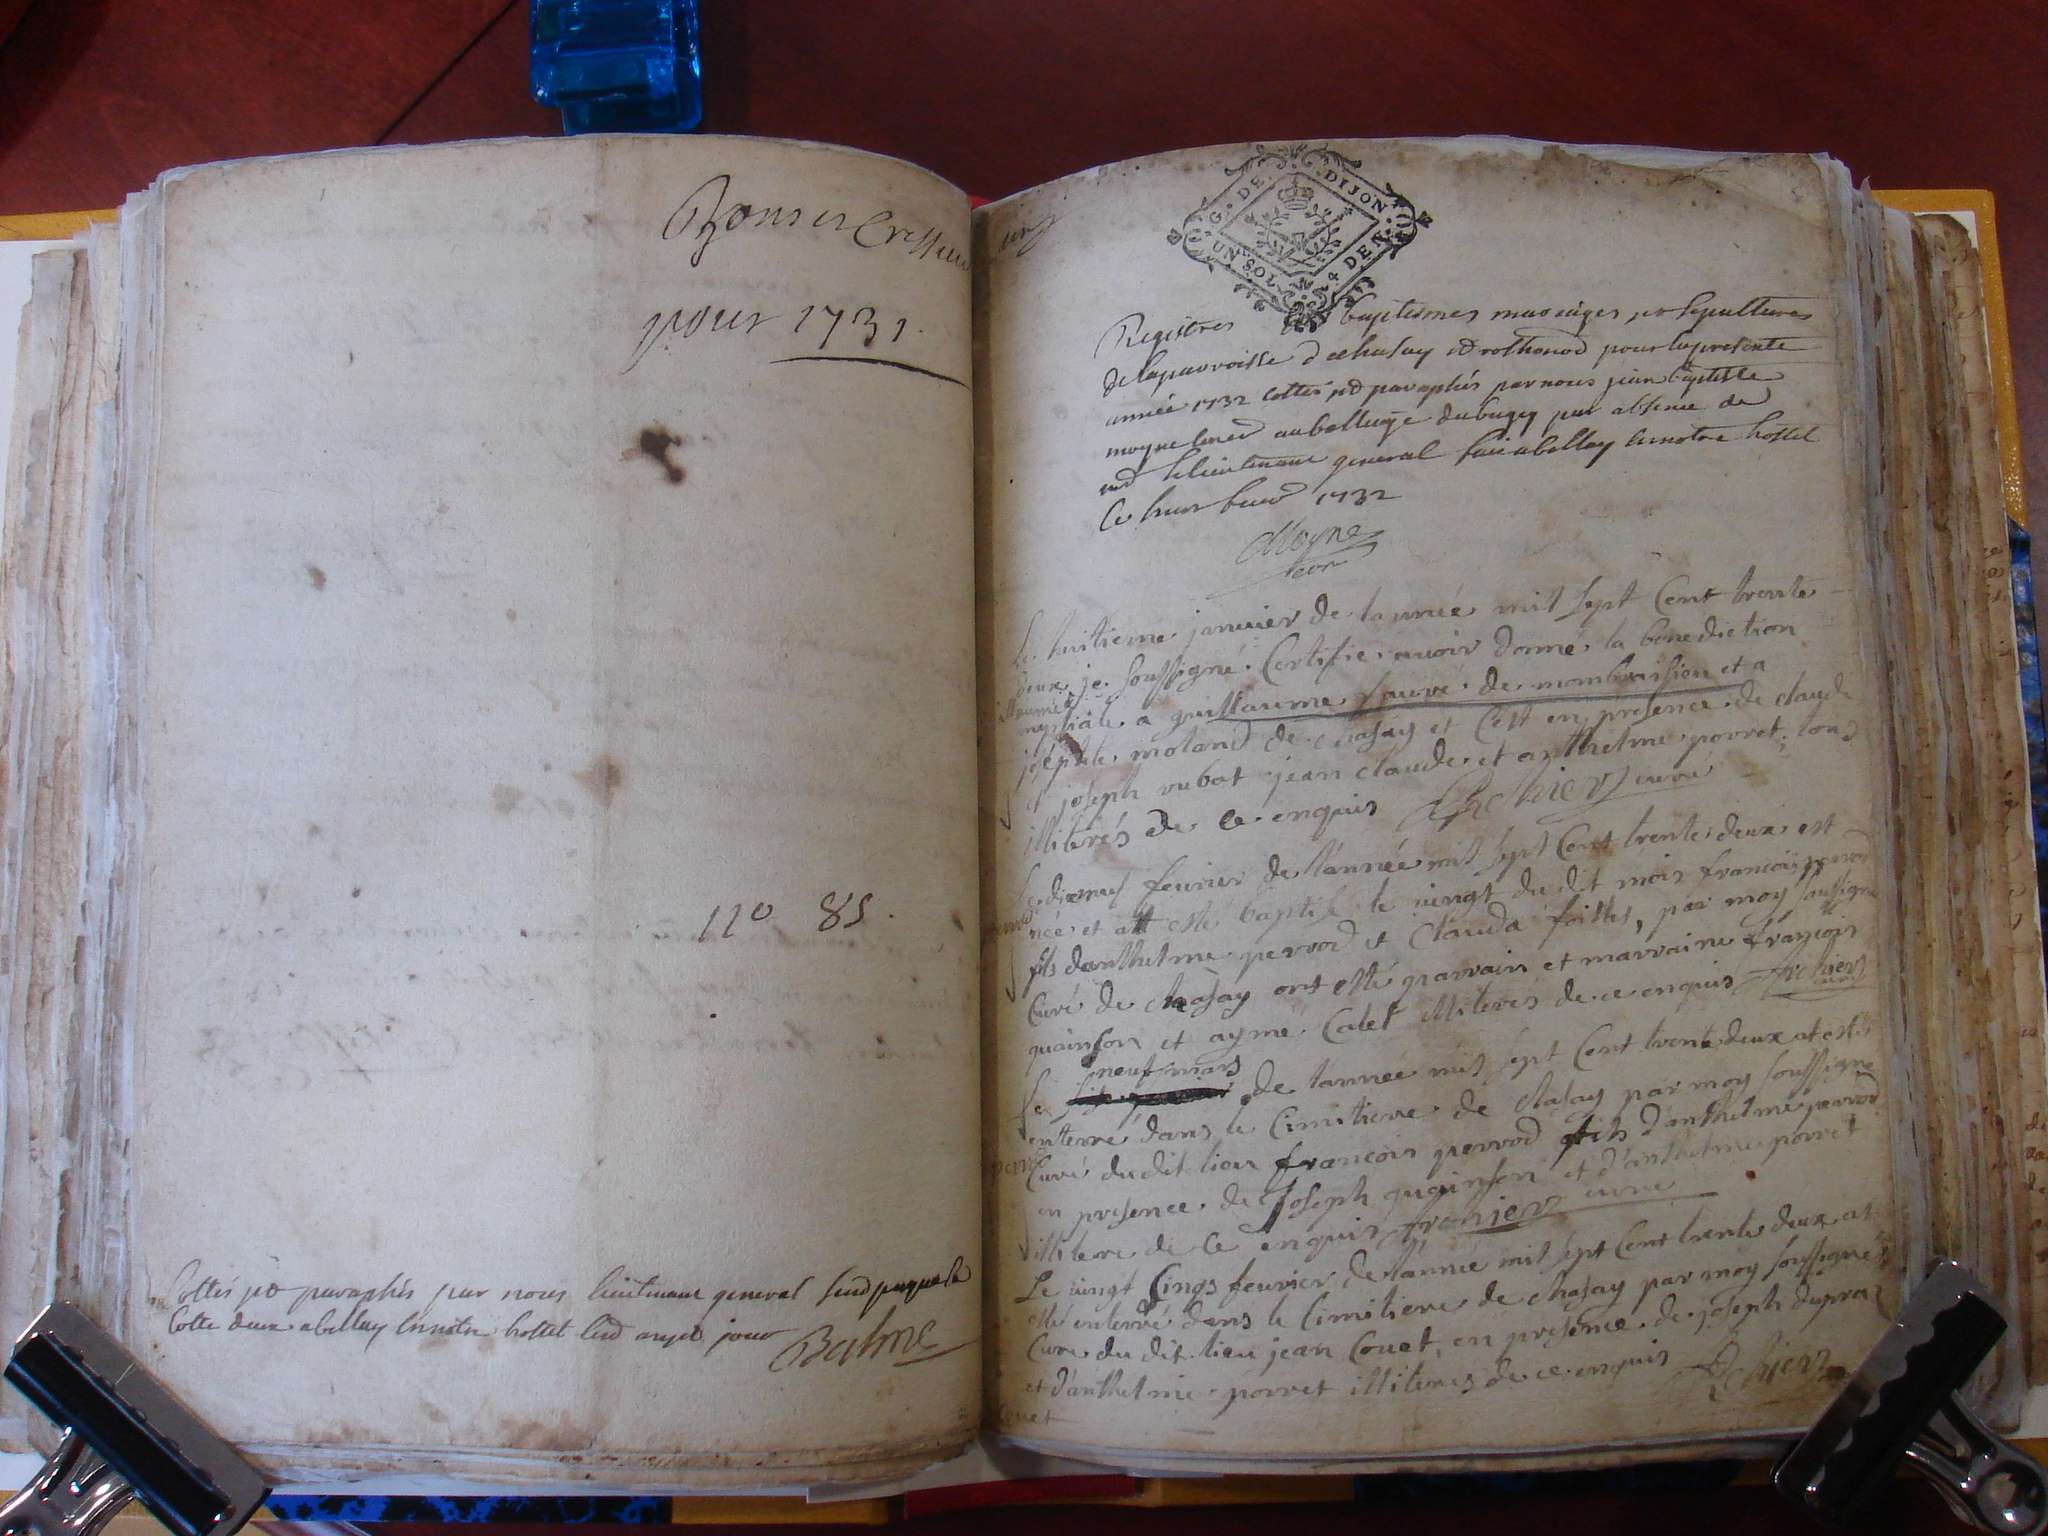 pour 1731.
no 85.
Cottés et paraphés par nous lieutenant general
Cotte deux a bellay en notre hostel jour
Balme
G. DE DIJON.
UN SOL 4 DEN.
Registres baptesmes mariages et sepultures
de la parroisse de chasay et rothonod pour la presente
année 1732 cottés et paraphés par nous jean baptiste
moyne au balliage du bugey par absence de
le lieutenant general fait a bellay en notre hostel
Ce 1732
Moyne
Le huitieme janvier de lannée mil sept Cent trente
deux je soussigné Certifie avoir donné la benediction
nuptiale a guillaume fauré de et a
josephte moland de chasay et Cest en presence de claude
et joseph rubat jean claude et anthelme porret tous
illiterés de ce enquis Archier curé
Le dixneuf feurier de l'année mil sept Cent trente deux est
né et att esté baptisé le vingt du dit mois francois perrod
fils danthelme perrod et Clauda par moy soussigné
Curé de chasay ont esté parrain et marraine francois
quinson et aymé Calet illiterés de ce enquis Archier curé
neuf mars
Le de lannée mil sept Cent trente deux at esté
enterré dans le Cimitiere de chasay par moy soussigné
Curé du dit lieu francois perrod fils d'anthelme perrod
en presence de Joseph quinson et d'anthelme porret
illiteré de ce enquis Archier curé
Le vingt Cinq feurier de l'année mil sept Cent trente deux at
esté enterré dans le Cimitiere de chasay par moy soussigné
Curé du dit lieu jean Couet, en presence de joseph dupraz
et d'anthelme porret illiterés de ce enquis Archier
Couet